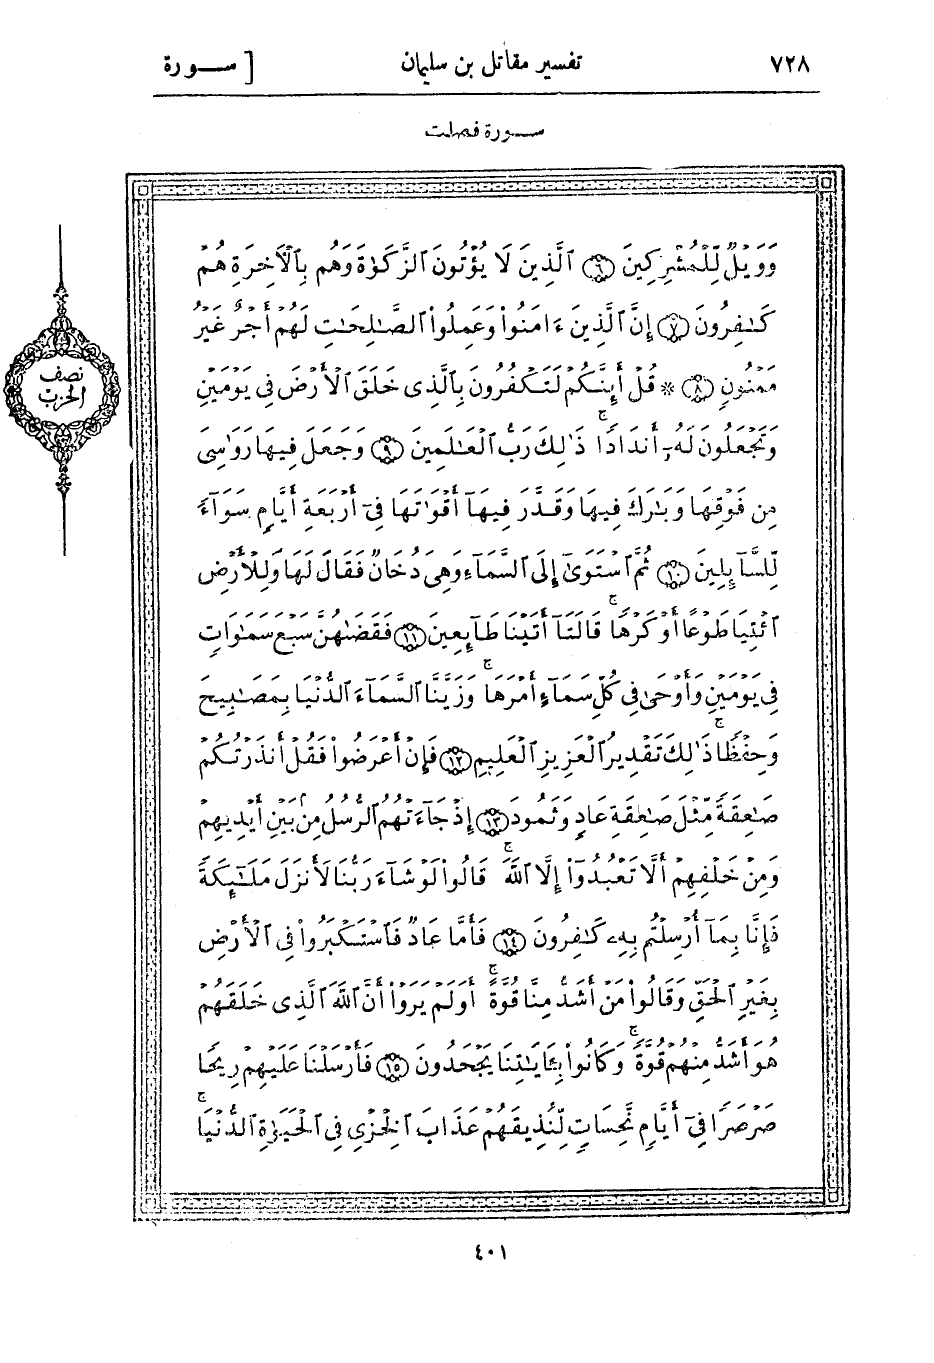 ٧٢٨ تفسير مقاتل بن سليمان [ سـورة
سـورة فصلت
وَوَيْلٌ لِّلْمُشْرِكِينَ ۝٦ ٱلَّذِينَ لَا يُؤْتُونَ ٱلزَّكَوٰةَ وَهُم بِٱلْأَخِرَةِ هُمْ
كَـٰفِرُونَ ۝٧ إِنَّ ٱلَّذِينَ ءَامَنُوا۟ وَعَمِلُوا۟ ٱلصَّـٰلِحَـٰتِ لَهُمْ أَجْرٌ غَيْرُ
مَمْنُونٍ ۝٨ * قُلْ أَئِنَّكُمْ لَتَكْفُرُونَ بِٱلَّذِى خَلَقَ ٱلْأَرْضَ فِى يَوْمَيْنِ
وَتَجْعَلُونَ لَهُۥٓ أَندَادًا ۚ ذَٰلِكَ رَبُّ ٱلْعَـٰلَمِينَ ۝٩ وَجَعَلَ فِيهَا رَوَٰسِىَ
مِن فَوْقِهَا وَبَـٰرَكَ فِيهَا وَقَدَّرَ فِيهَآ أَقْوَٰتَهَا فِىٓ أَرْبَعَةِ أَيَّامٍ سَوَآءً
لِّلسَّآئِلِينَ ۝١٠ ثُمَّ ٱسْتَوَىٰٓ إِلَى ٱلسَّمَآءِ وَهِىَ دُخَانٌ فَقَالَ لَهَا وَلِلْأَرْضِ
ٱئْتِيَا طَوْعًا أَوْ كَرْهًا ۚ قَالَتَآ أَتَيْنَا طَآئِعِينَ ۝١١ فَقَضَىٰهُنَّ سَبْعَ سَمَـٰوَاتٍ
فِى يَوْمَيْنِ وَأَوْحَىٰ فِى كُلِّ سَمَآءٍ أَمْرَهَا ۚ وَزَيَّنَّا ٱلسَّمَآءَ ٱلدُّنْيَا بِمَصَـٰبِيحَ
وَحِفْظًا ۚ ذَٰلِكَ تَقْدِيرُ ٱلْعَزِيزِ ٱلْعَلِيمِ ۝١٢ فَإِنْ أَعْرَضُوا۟ فَقُلْ أَنذَرْتُكُمْ
صَـٰعِقَةً مِّثْلَ صَـٰعِقَةِ عَادٍ وَثَمُودَ ۝١٣ إِذْ جَآءَتْهُمُ ٱلرُّسُلُ مِنۢ بَيْنِ أَيْدِيهِمْ
وَمِنْ خَلْفِهِمْ أَلَّا تَعْبُدُوٓا۟ إِلَّا ٱللَّهَ ۚ قَالُوا۟ لَوْ شَآءَ رَبُّنَا لَأَنزَلَ مَلَـٰٓئِكَةً
فَإِنَّا بِمَآ أُرْسِلْتُم بِهِۦ كَـٰفِرُونَ ۝١٤ فَأَمَّا عَادٌ فَٱسْتَكْبَرُوا۟ فِى ٱلْأَرْضِ
بِغَيْرِ ٱلْحَقِّ وَقَالُوا۟ مَنْ أَشَدُّ مِنَّا قُوَّةً ۚ أَوَلَمْ يَرَوْا۟ أَنَّ ٱللَّهَ ٱلَّذِى خَلَقَهُمْ
هُوَ أَشَدُّ مِنْهُمْ قُوَّةً ۚ وَكَانُوا۟ بِـَٔايَـٰتِنَا يَجْحَدُونَ ۝١٥ فَأَرْسَلْنَا عَلَيْهِمْ رِيحًا
صَرْصَرًا فِىٓ أَيَّامٍ نَّحِسَاتٍ لِّنُذِيقَهُمْ عَذَابَ ٱلْخِزْىِ فِى ٱلْحَيَوٰةِ ٱلدُّنْيَا ۚ
نصف
الحزب
٤٠١